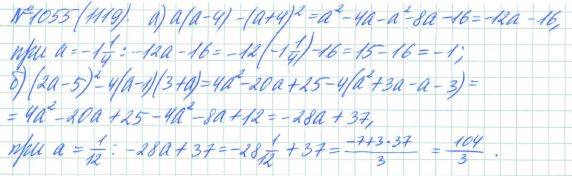 №1055(1119). а) a(a-4)-(a+4)²=a²-4a-a²-8a-16=-12a-16,
при a=-1 1/4: -12a-16=-12(-1 1/4)-16=15-16=-1;
б) (2a-5)²-4(a-1)(3+a)=4a²-20a+25-4(a²+3a-a-3)=
=4a²-20a+25-4a²-8a+12=-28a+37,
при a=1/12: -28a+37=-28 1/12+37=(-7+3·37)/3=104/3.